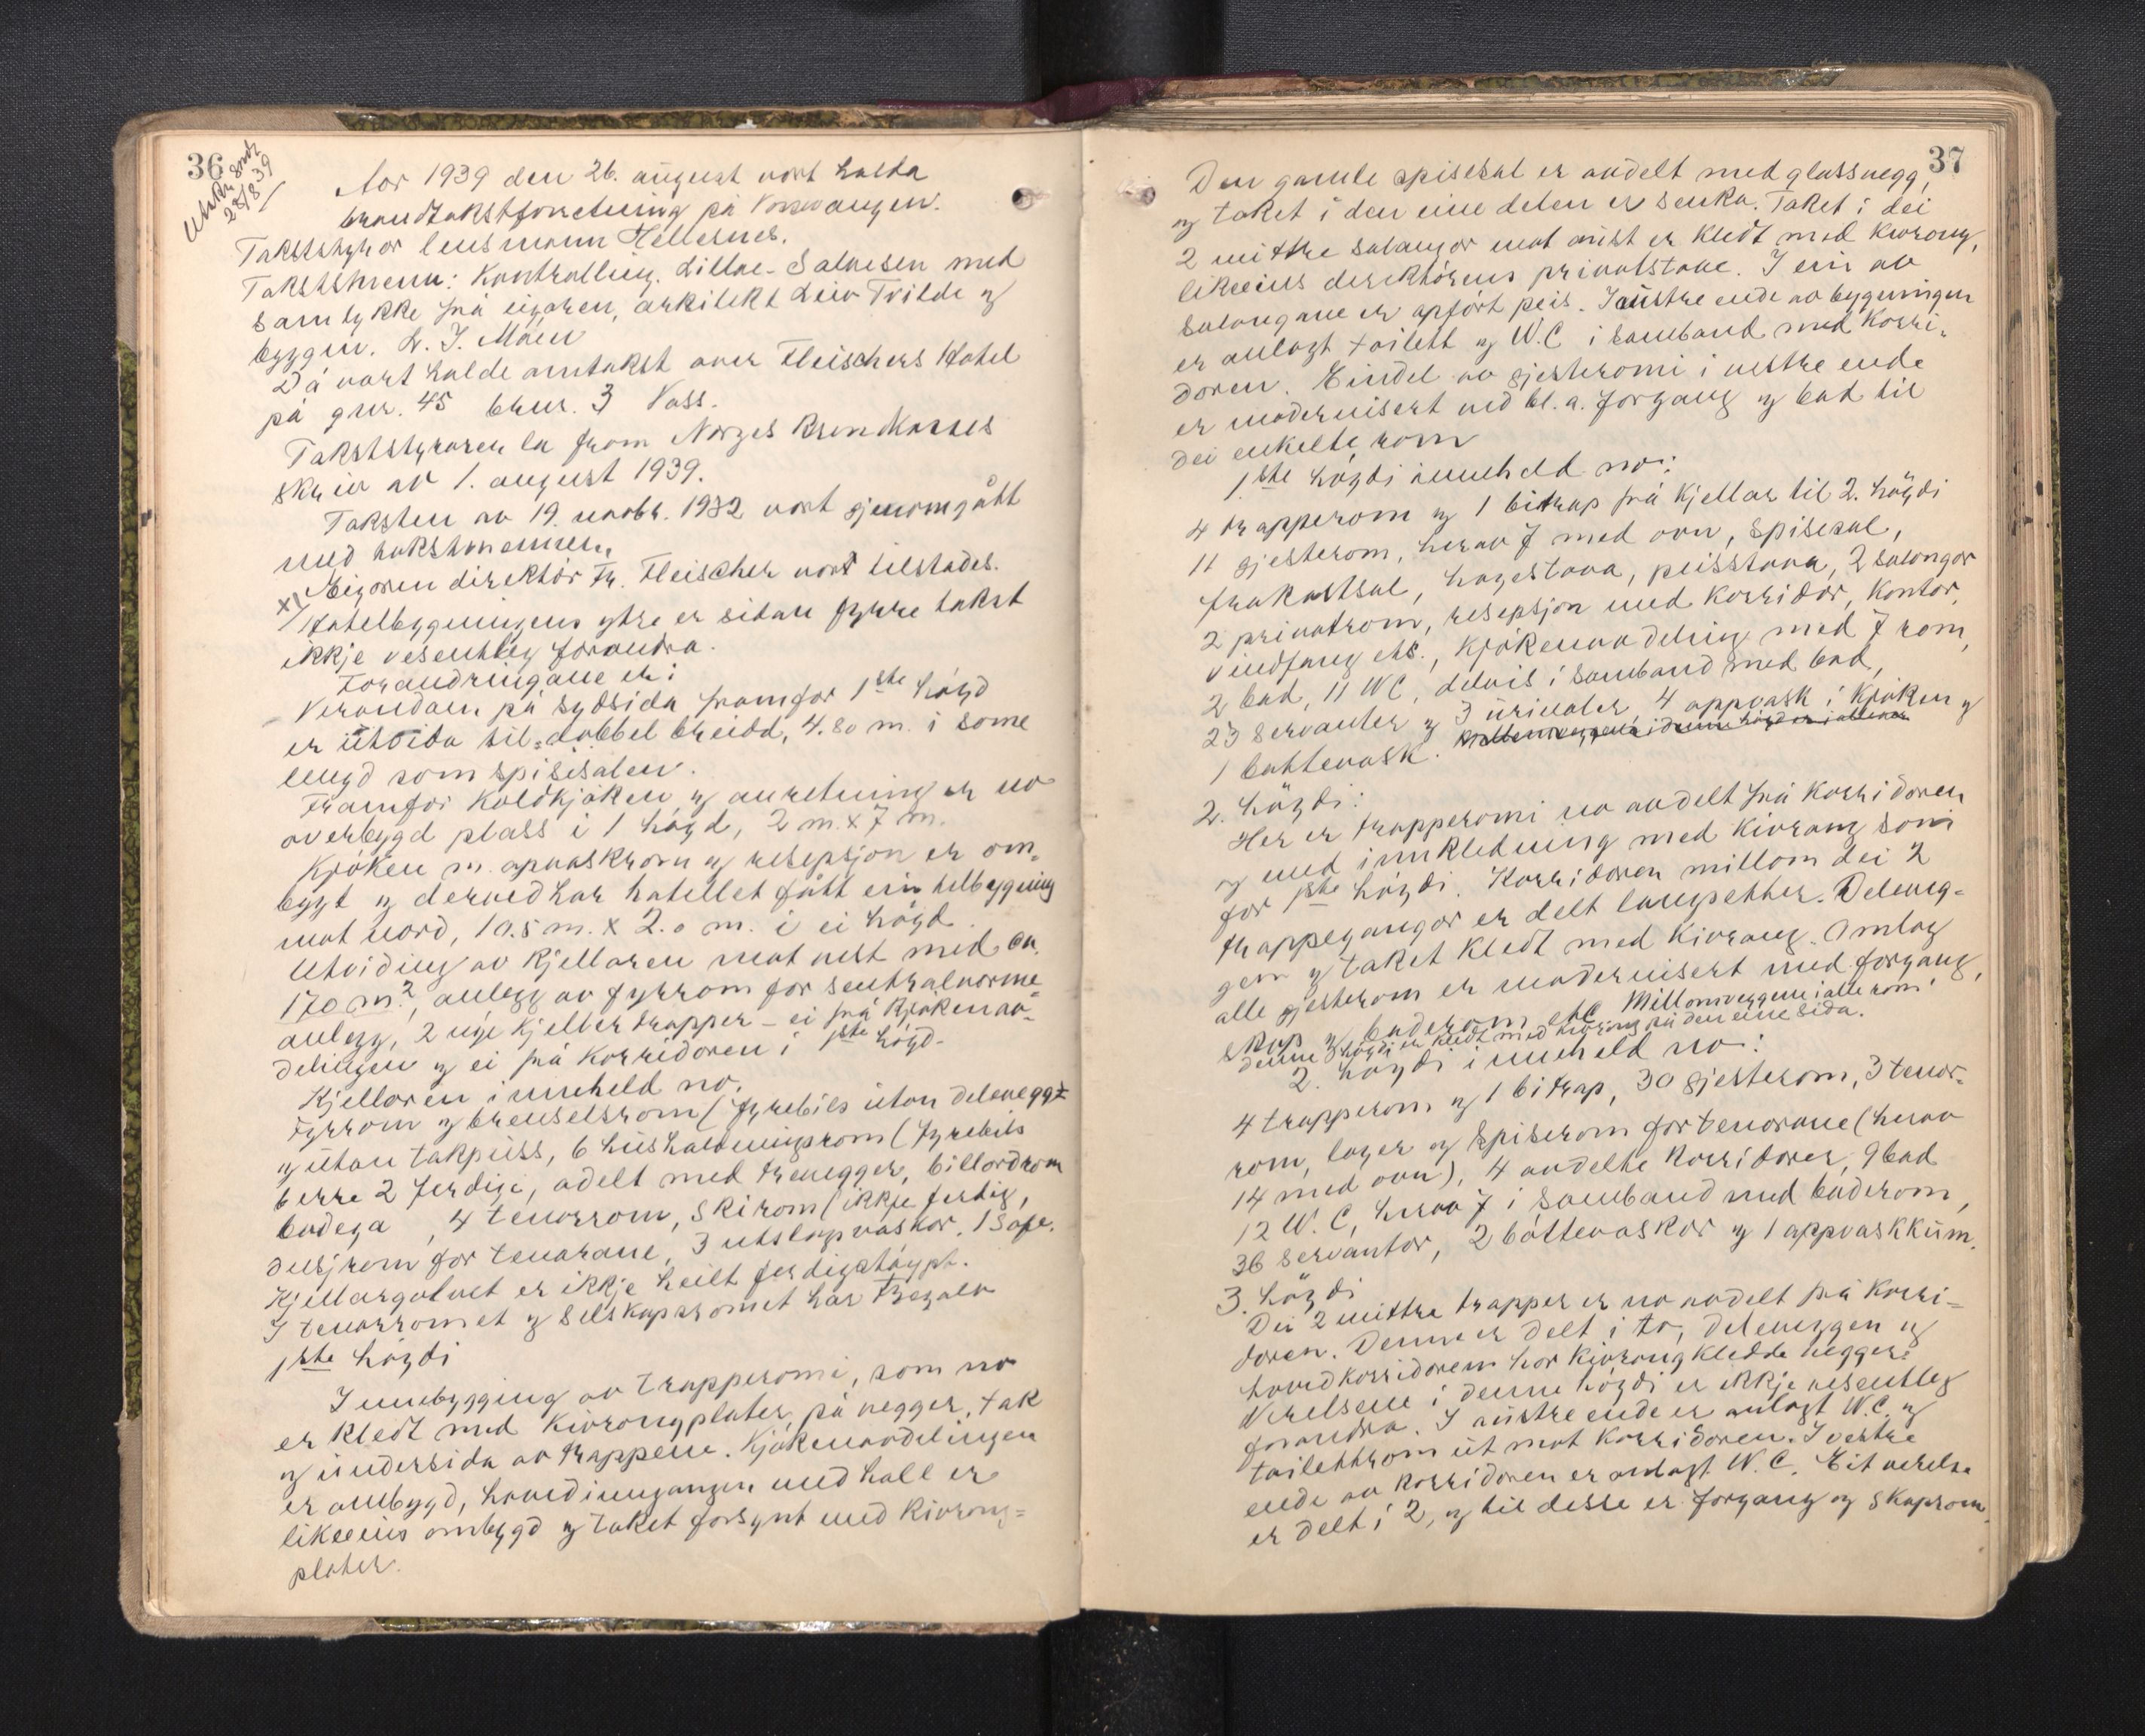 36
Utskr. sendt
28/8 39
Aar 1939 den 26. august vart halda
brandtakstforretning på Vossevangen.
Takststyrar lensmann Hellesnes.
Takstsmenn: Kontrolling. Lillae-Salvesen med
samtykke frå eigaren, arkitekt Leiv Tvilde og
byggm. L. I. Måen
Då vart halde omtakst over Fleischers Hotel
på gnr. 45 bnr. 3 Voss.
Takststyraren la fram Norges Brandkasses
skriv av 1. august 1939.
Taksten av 19. novbr. 1932 vart gjenomgått
med takstmennene,
Eigaren direktör Fr. Fleischer vart tilstades.
x) Hotelbygningens ytre er sidan fyrre takst
ikkje vesentleg forandra.
Forandringane er:
Verandaen på sydsida framfor 1ste högd
er utvida til dobbel breidd, 4.80 m. i same
lengd som spisesalen.
Framfor Koldkjöken og anretning er no
overbygd plass i 1 högd, 2 m. x 7 m.
Kjöken m. opvaskrom og resepsjon er om-
bygt og derved har hotellet fått ein tilbygning
mot nord, 10.5 m. x 2.0 m. i ei högd.
Utviding av Kjellaren mot vest med ca.
170 m², anlegg av fyrrom for sentralvarme-
anlegg, 2 nye Kjellertrapper – ei frå Kjökenav-
delingen og ei frå Korridoren i 1ste högd.
Kjellaren inneheld no.
Fyrrom og brenselsrom (fyrebils utan delevegg
og utan takpuss, 6 husholdningsrom (fyrebils
berre 2 ferdige, adelt med trevegger, billardrom
bodega, 4 tenarrom, skirom (ikkje ferdig,
dusjrom for tenarane, 3 utslagsvaskar. 1 Safe.
Kjellargolvet er ikkje heilt ferdigstöypt.
I tenarromet og Selskapsromet har Tregolv
1ste högdi
Innebygging av trapperomi, som no
er kledt med Kivrongplater, på vegger, tak
og undersida av trappene. Kjökenavdelingen
er ombygd, hovedinngangen med hall er
likeeins ombygd og taket forsynt med Kivrong-
plater.
37
Den gamle spisesal er avdelt med glassvegg,
og taket i den eine delen er senka. Taket i dei
2 mittre salongar mot aust er kledt med Kivrong,
likeeins direktörens privatstove. I ein av
salongane er opfört peis. I austre ende av bygningen
er anlagt toilett og W.C i samband med Korri-
doren. Eindel av gjesteromi i vestre ende
er modernisert ved bl. a. forgang og bad til
dei enkelte rom
1ste högdi inneheld no:
4 trapperom og 1 bitrap frå Kjellar til 2. högdi
11 gjesterom, herav 7 med ovn, Spisesal,
frukostsal, hagestova, peisstova, 2 salongar
2 privatrom, resepsjon med Korridor, Kontor,
vindfang etc., Kjökenavdeling med 7 rom,
2 bad, 11 WC, delvis i samband med bad,
23 servanter og 3 urinaler, 4 oppvask i Kjöken og
1 bøttevask.
2. högdi:
Her er trapperomi no avdelt frå Korridoren
og med innkledning med Kivrong som
for 1ste högdi. Korridoren millom dei 2
trappegangar er delt langsetter. Deleveg-
gen og taket kledt med Kivrong. Omlag
alle gjesterom er modernisert med forgang,
skap og baderom etc Millomveggene i alle rom i
denne högdi er kledt med Kivrong på den eine sida.
2. högdi inneheld no:
4 trapperom og 1 bitrap, 30 gjesterom, 3 tenar-
rom, lager og Spiserom for tenarane (herav
14 med ovn), 4 avdelte Korridorer, 9 bad
12 W. C, herav 7 i samband med baderom,
36 servantar, 2 böttevaskar og 1 oppvaskkum.
3. högdi
Dei 2 mittre trapper er no avdelt frå Korri-
doren. Denne er delt i to, deleveggen og
hovedkorridoren har Kivrong kledde vegger.
Verelsene i denne högdi er ikkje vesentleg
forandra. I austre ende er anlagt W.C. og
toilettrom ut mot Korridoren. I vestre
ende av Korridoren er anlagt W. C. Eit verelse
er delt i 2, og til desse er forgang og skaprom.